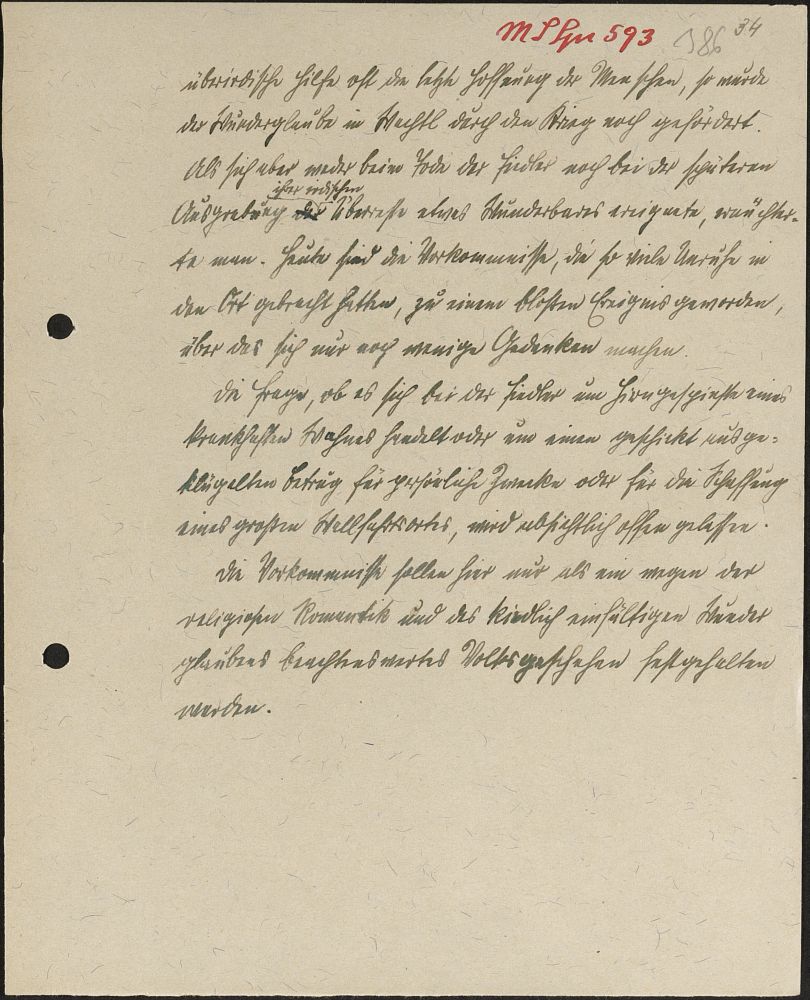 593 186 34
überirdische Hilfe oft die letzte Hoffnung der Menschen, so wurde
der Wunderglaube in Wachtl durch den Krieg noch gefördert.
Als sich aber weder beim Tode der Fiedler noch bei der späteren
ihrer irdischen
Ausgrabung der Überreste etwas Wunderbares ereignete, ernüchter-
te man. Heute sind die Vorkommnisse, die so viele Unruhe in
den Ort gebracht hatten, zu einem bloßen Ereignis geworden,
über das sich nur noch wenige Gedanken machen.
Die Frage, ob es sich bei der Fiedler um Hirngespinste eines
krankhaften Wahnes handelt oder um einen geschickt ausge-
klügelten Betrug für persönliche Zwecke oder für die Schaffung
eines großen Wallfahrtsortes, wird absichtlich offen gelassen.
Die Vorkommnisse sollen hier nur als ein wegen der
religiösen Romantik und des kindlich einfältigen Wunder
glaubens beachtenswertes Volksgeschehen festgehalten
werden.